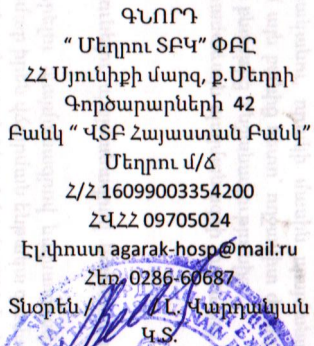 ԳՆՈՐԴ
“ Մեղրու ՏԲԿ” ՓԲԸ
ՀՀ Սյունիքի մարզ, ք.Մեղրի
Գործարարների 42
Բանկ “ ՎՏԲ Հայաստան Բանկ”
Մեղրու մ/ճ
Հ/Հ 16099003354200
ՀՎՀՀ 09705024
Էլ.փոստ agarak-hosp@mail.ru
Հեռ. 0286-60687
Տնօրեն / / Լ. Վարդանյան
Կ.Տ.